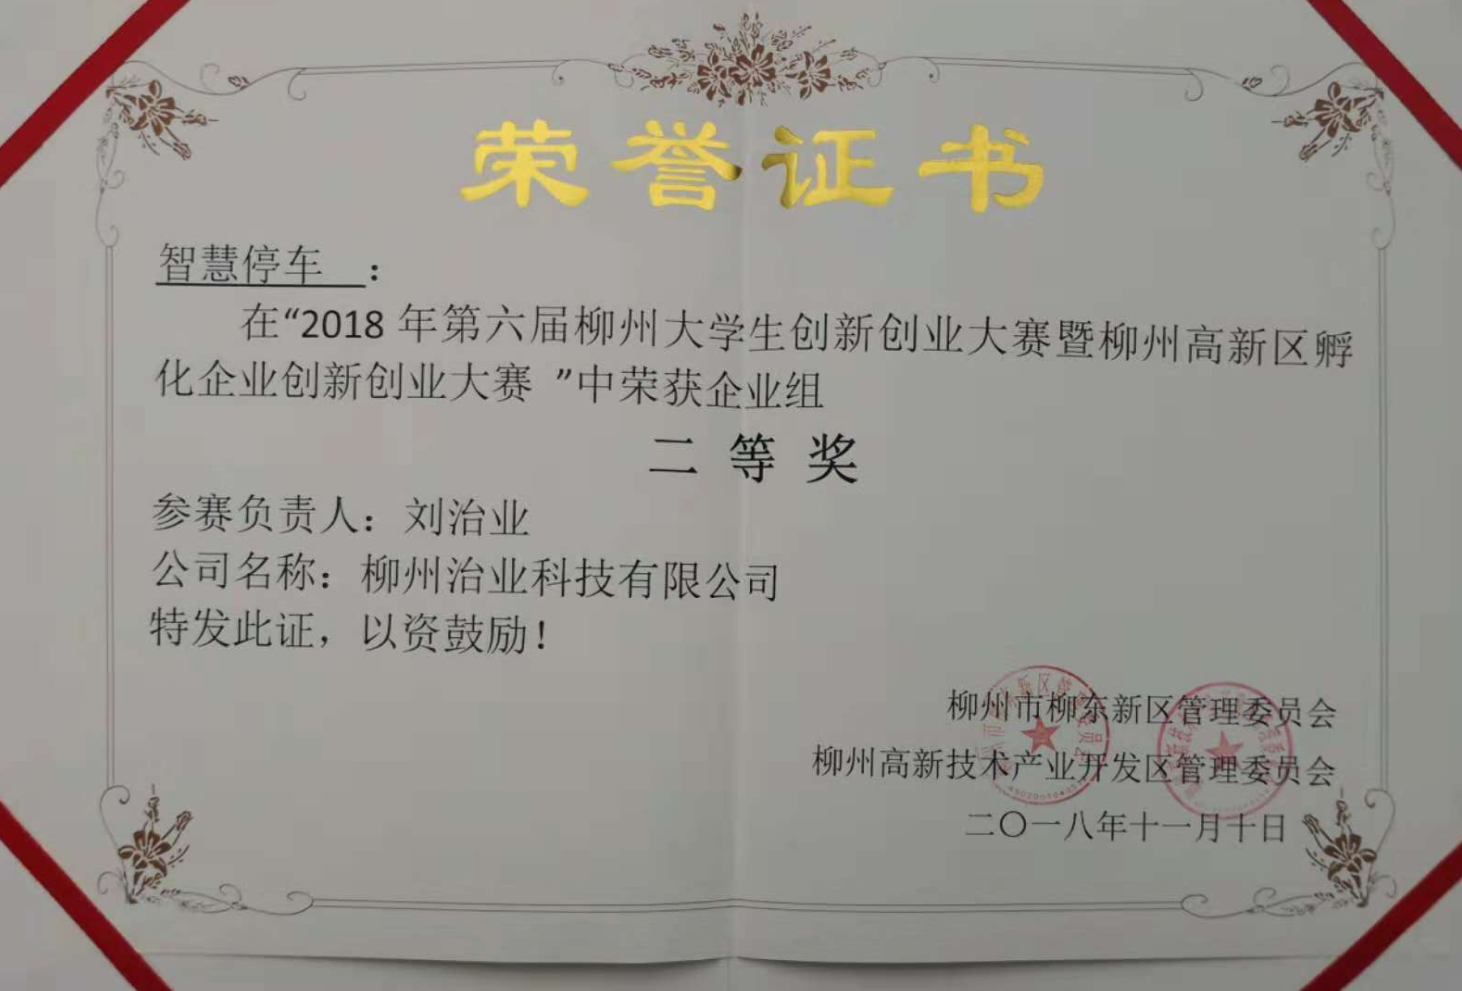 荣誉证书
智慧停车 ：
在“2018 年第六届柳州大学生创新创业大赛暨柳州高新区孵
化企业创新创业大赛 ”中荣获企业组
二 等 奖
参赛负责人：刘治业
公司名称：柳州治业科技有限公司
特发此证，以资鼓励！
柳州市柳东新区管理委员会
柳州高新技术产业开发区管理委员会
二〇一八年十一月十日